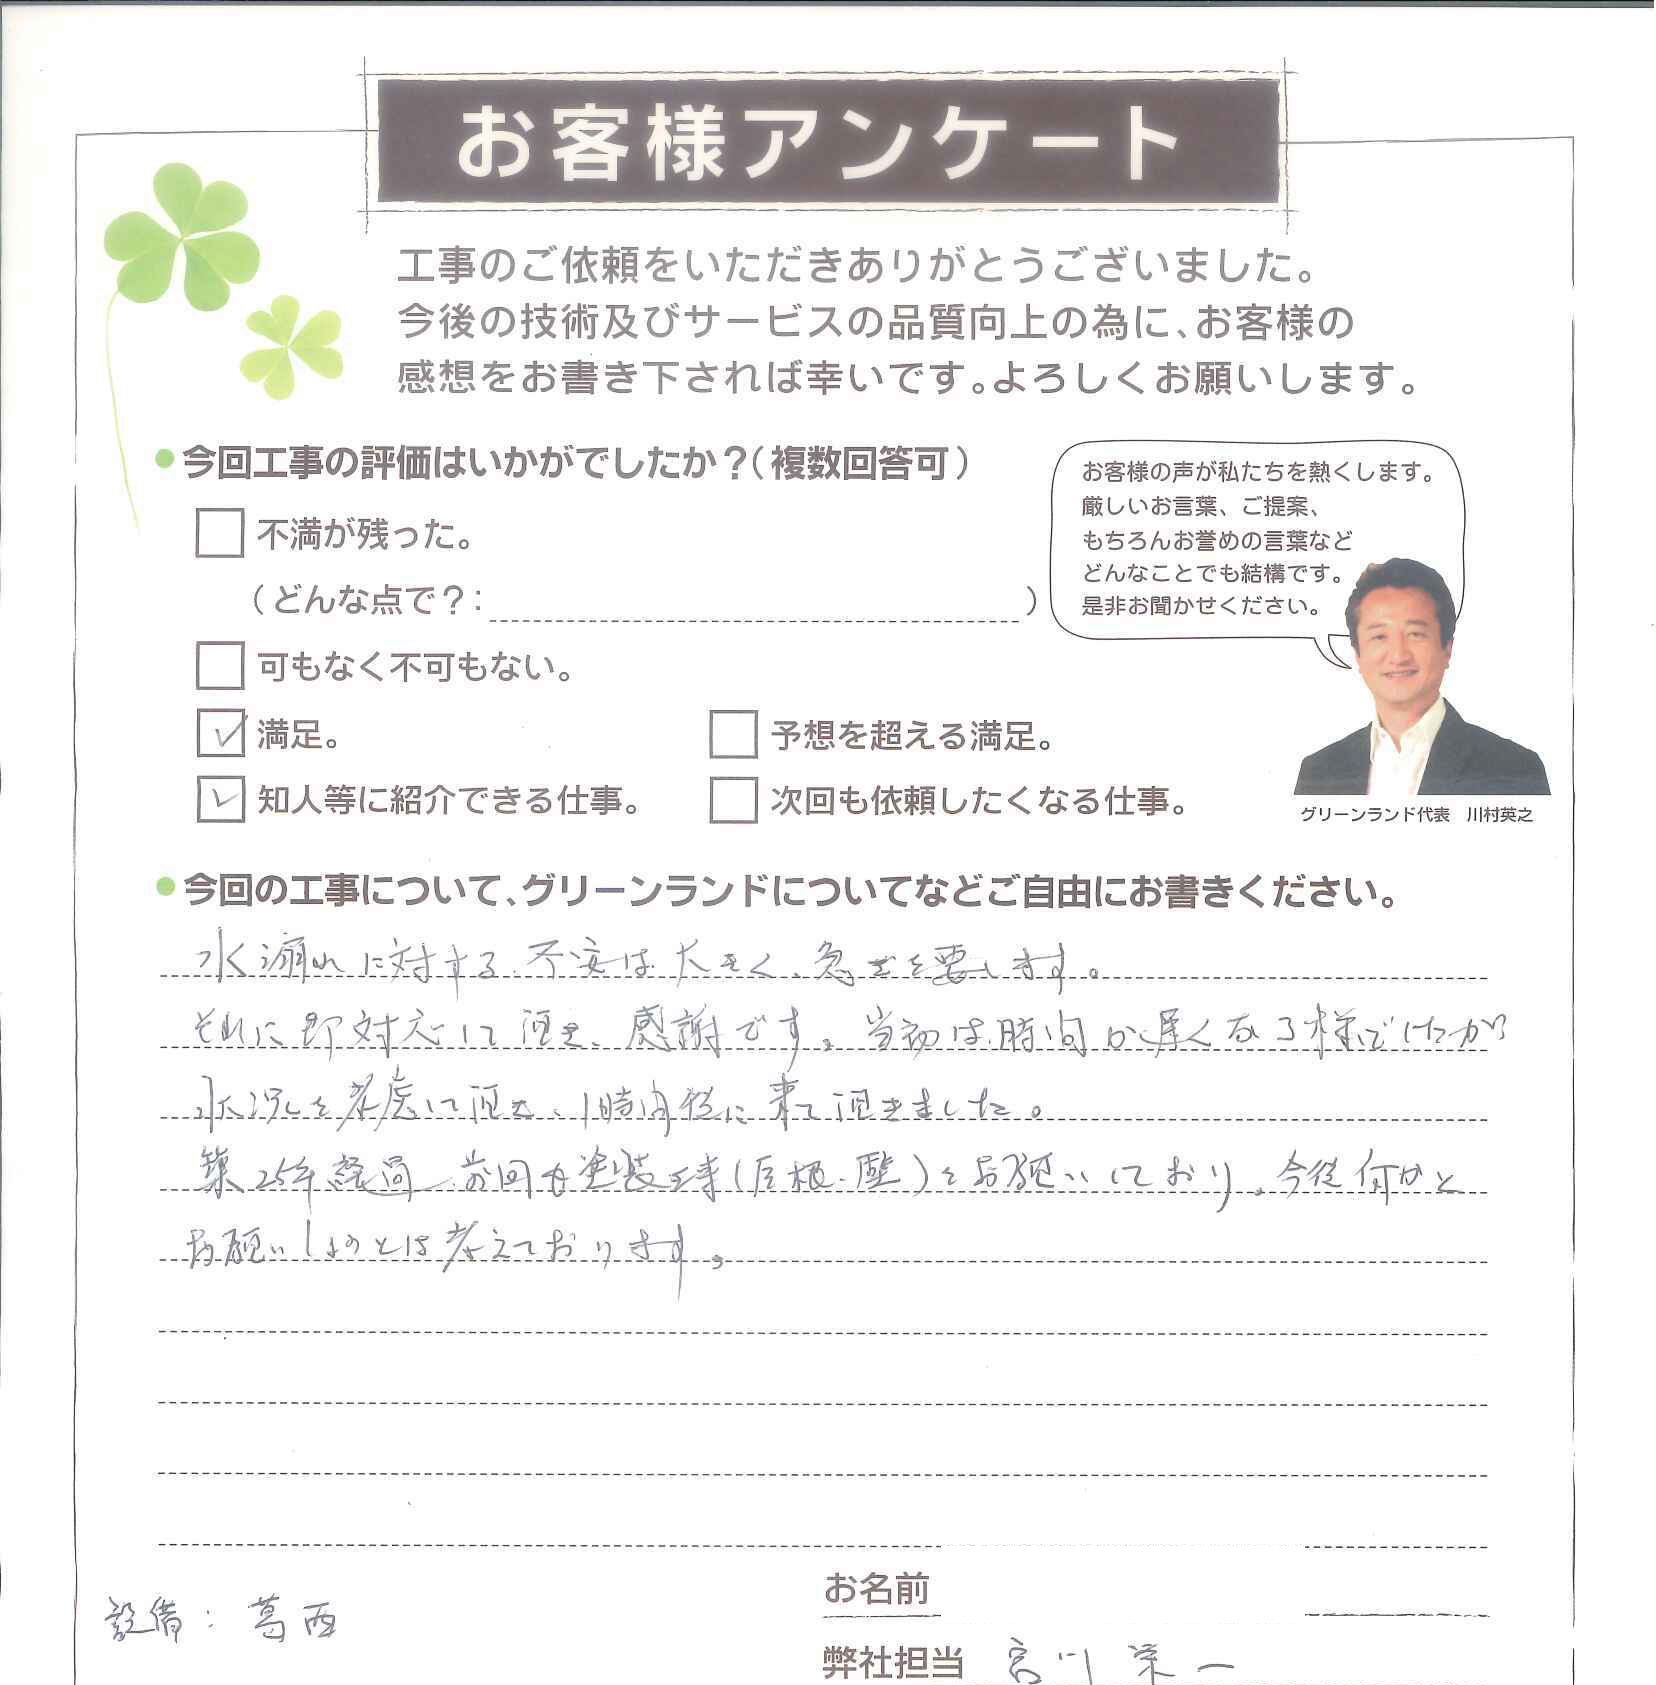 お客様アンケート
工事のご依頼をいただきありがとうございました。
今後の技術及びサービスの品質向上の為に、お客様の
感想をお書き下されば幸いです。よろしくお願いします。
●今回工事の評価はいかがでしたか？（複数回答可）
□ 不満が残った。
（どんな点で？： ）
□ 可もなく不可もない。
☑ 満足。 □ 予想を超える満足。
☑ 知人等に紹介できる仕事。 □ 次回も依頼したくなる仕事。
お客様の声が私たちを熱くします。
厳しいお言葉、ご提案、
もちろんお誉めの言葉など
どんなことでも結構です。
是非お聞かせください。
グリーンランド代表 川村英之
●今回の工事について、グリーンランドについてなどご自由にお書きください。
水漏れに対する不安は大きく、急ぎを要します。
それに即対応して頂き、感謝です。当初は時間が遅くなる様でしたが
状況を考慮して頂き、1時間後に来て頂きました。
築25年経過、前回も塗装工事(屋根・壁)をお願いしており、今後何かと
お願いしようとは考えております。
お名前
設備：葛西
弊社担当 宮川 栄一